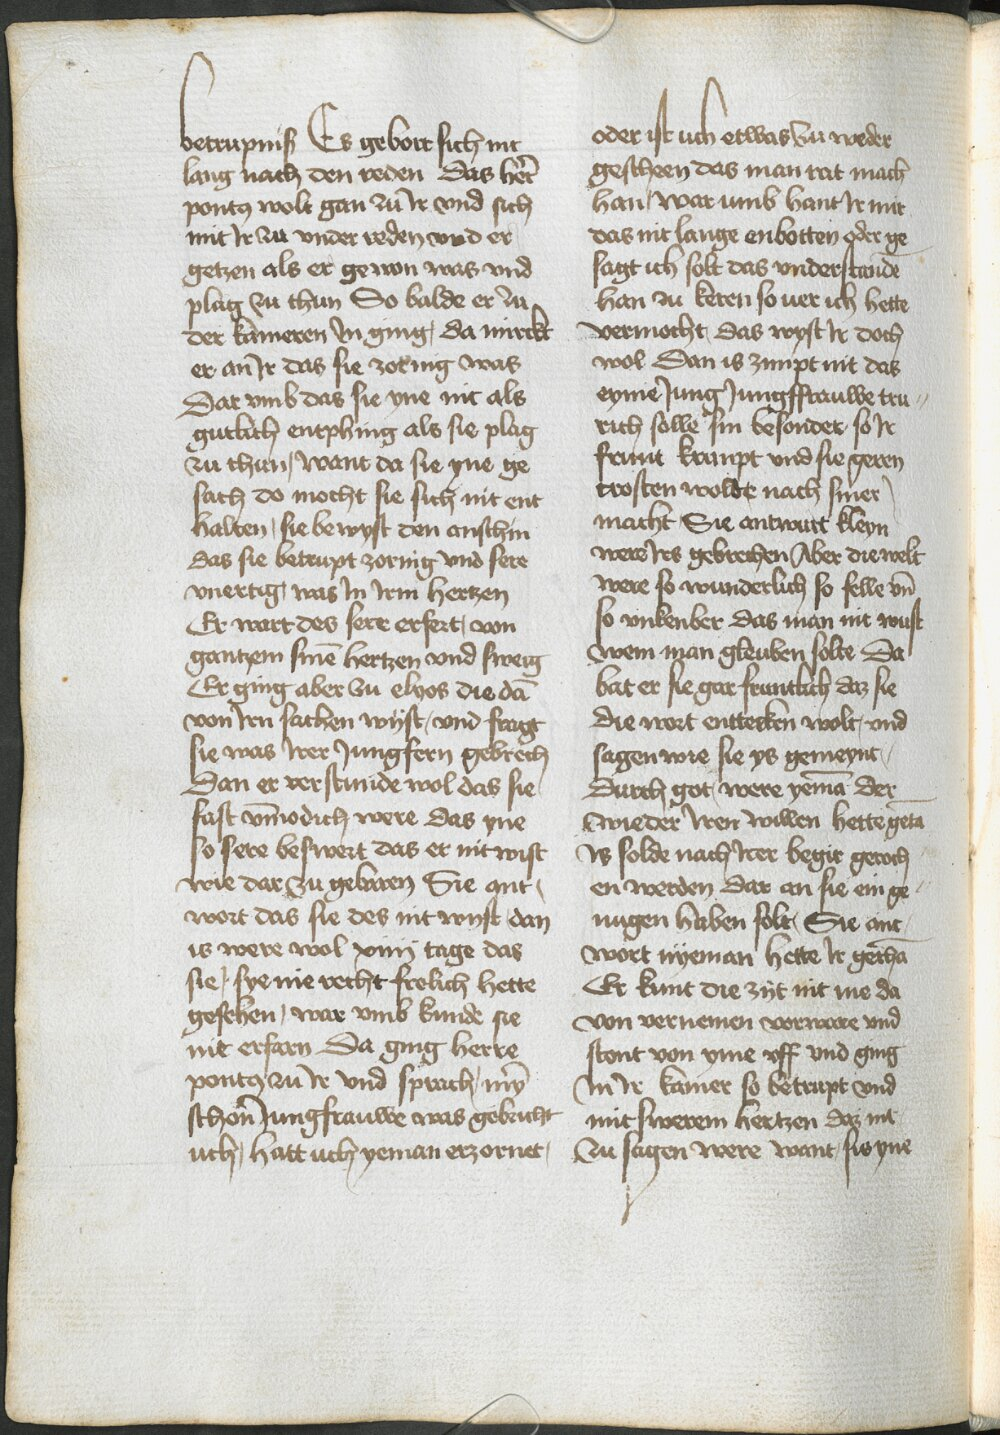 betrupniß Es gebort sich nit
lang nach den reden Das her̄
pontꝯ wolt gan zu Ir vnd sich
mit Ir zu vnder reden vnd er
getzen als er gewon was vnd
plag zu thun So balde er zu
der kameren In ging, da mirckt
er an Ir das sie zornig was
Dar vmb das sie yne nit als
gutlich entphing als sie plag
zu thun, want da sie yne ge
sach do mocht sie sich nit ent
halten, sie bewyst den anschin
das sie betrupt zornig vnd sere
vnertig, was In Irm hertzen
Er wart des sere erfert, von
gantzem sinē hertzen vnd sweig
Er ging aber zu elyos die dā
von Irn sachen wist, vnd fragt
sie was Irer Jungfern gebrech
Dan er verstunde wol das sie
fast vm̄odich were Das yne
so sere beswert das er nit wist
wie dar zu gebaren Sie ant,
wort das sie des nit wyst, dan
is were wol xiiij tage das
sie, sye nie recht frolich hette
gesehen, war vmb kunde sie
nit erfarn Da ging herre
pontꝯ zu Ir vnd sprach, my̅
schon̄ Jungfrauwe was gebricht
uch, hatt uch yeman erzornet,
oder ist uch etwas zu weder
gescheen das man rat mach
han, war umb hant Ir mir
das nit lange enbotten oder ge
sagt ich solt das vnderstande
han zu keren so uer ich hette
vermocht, das wyst Ir doch
wol Dan is zimpt nit das
eyme Jung Jungffrauwe tru〃
rich solle sin besonder, so Ir
frunt krumpt vnd sie geren
trosten wolde nach siner
macht Sie antwurt kleyn
were Irs gebrechen Aber die welt
were so wunderlich so felle vn̄
so vnkenber das man nit wust
wem man gleuben solte Da
bat er sie gar fruntlich daz sie
die wort enttecken wolt, vnd
sagen wie sie ys gemeynt,
Durch got, were yemā der
wieder Iren willen hette getā
Is solde nach Irer begir geroch
en werden dar an sie ein ge〃
nugen haben solt, Sie ant,
wort nyeman hette Ir gethā
Er kunt die zijt nit me da
von vernemen vorware vnd
stont von yme vff vnd ging
In Ir kamer so betrupt vnd
mit swerem hertzen daz nit
zu sagen were want, sie yne